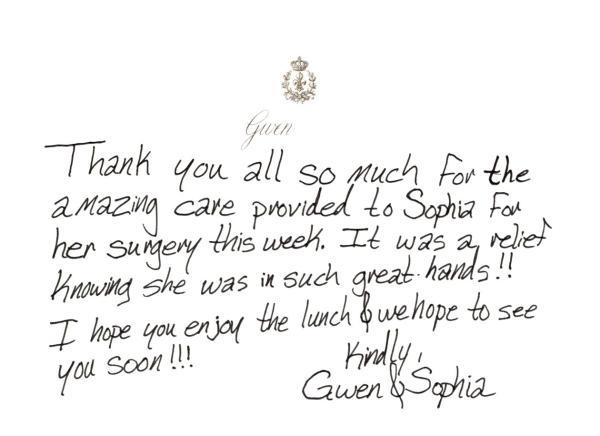 Gwen
Thank you all so much for the
amazing care provided to Sophia for
her surgery this week. It was a relief
knowing she was in such great hands!!
I hope you enjoy the lunch & we hope to see
you soon!!!
Kindly,
Gwen & Sophia